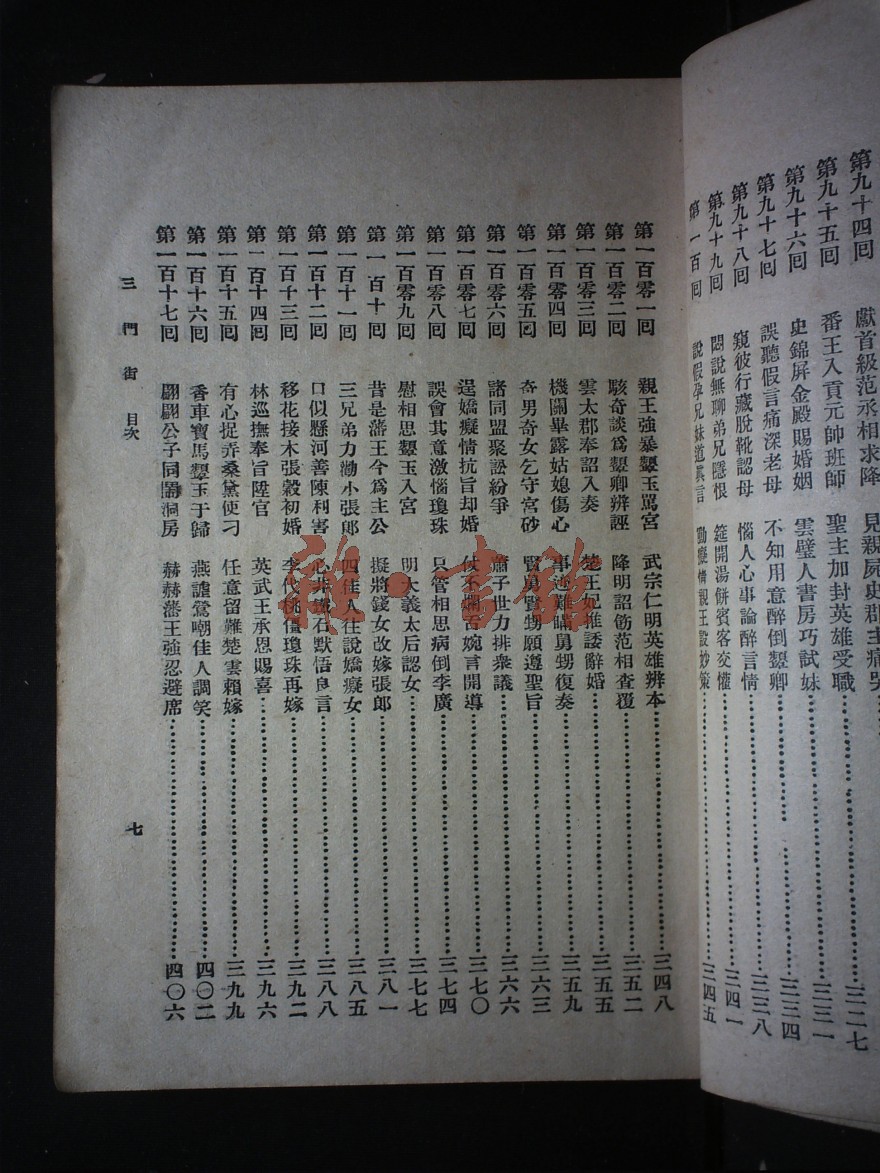 第九十四回 獻首級范丞相求降 見親屍史郡主痛哭 三二七
第九十五回 番王入貢元帥班師 聖主加封英雄受職 三三一
第九十六回 史錦屏金殿賜婚姻 雲璧人書房巧試妹 三三四
第九十七回 誤聽假言痛深老母 不知用意醉倒顰卿 三三八
第九十八回 窺彼行藏脫靴認母 惱人心事論醉言情 三四一
第九十九回 悶說無聊弟兄隱恨 筵開湯餅賓客交懽
第一百回 說假孕兄妹道眞言 勸癡情親王設妙策 三四五
第一百零一回 親王強暴顰玉罵宮 武宗仁明英雄辨本 三四八
第一百零二回 駭奇談爲顰卿辨誣 降明詔飭范相查覆 三五二
第一百零三回 雲太郡奉詔入奏 楚王妃推諉辭婚 三五五
第一百零四回 機關畢露姑媳傷心 事迹難瞞舅甥復奏 三五九
第一百零五回 奇男奇女乞守宮砂 賢舅賢甥願遵聖旨 三六三
第一百零六回 諸同盟聚訟紛爭 蕭子世力排衆議 三六六
第一百零七回 逞嬌癡情抗旨却婚 伏不爛舌婉言開導 三七〇
第一百零八回 誤會其意激惱瓊珠 只管相思病倒李廣 三七四
第一百零九回 慰相思顰玉入宮 明大義太后認女 三七七
第一百十回 昔是藩王今爲主公 擬將錢女改嫁張郞 三八一
第一百十一回 三兄弟力泐小張郞 四佳人往說嬌癡女 三八五
第一百十二回 口似懸河善陳利害 心非鐵石默悟良言 三八八
第一百十三回 移花接木張穀初婚 李代桃僵瓊珠再嫁 三九二
第一百十四回 林巡撫奉旨陞官 英武王承恩賜喜 三九六
第一百十五回 有心捉弄桑黛使刁 任意留難楚雲賴嫁 三九九
第一百十六回 香車寶馬顰玉于歸 燕謔鶯嘲佳人調笑 四〇二
第一百十七回 翩翩公子同鬧洞房 赫赫藩王強忍避席 四〇六
三門街 目次
七
雅·書館